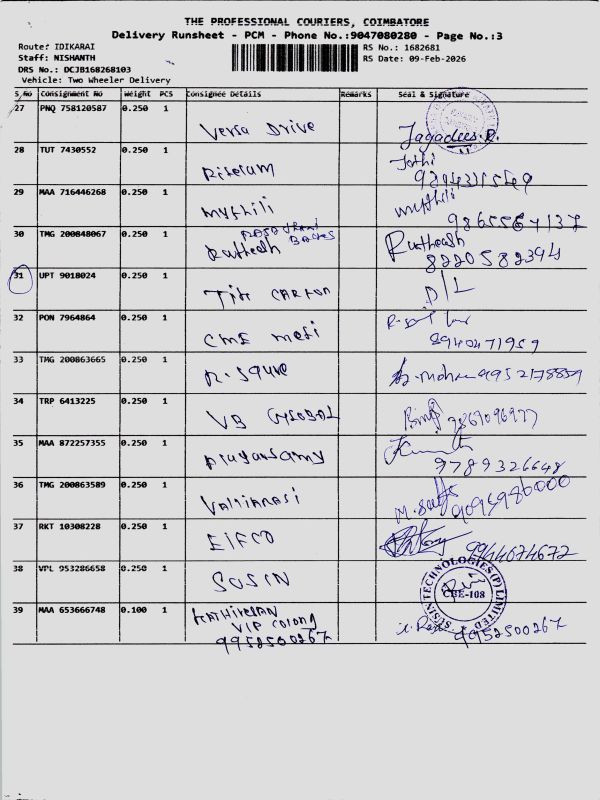 THE PROFESSIONAL COURIERS, COIMBATORE
Delivery Runsheet - PCM - Phone No.:9047080280 - Page No.:3
Route: IDIKARAI
RS No.: 1682681
Staff: NISHANTH
RS Date: 09-Feb-2026
DRS No.: DCJB168268103
Vehicle: Two Wheeler Delivery
S.No Consignment No Weight PCS Consignee Details Remarks Seal & Signature
27 PNQ 758120587 0.250 1 Versa Drive Jagadees.R.
28 TUT 7430552 0.250 1 Jothi
29 MAA 716446268 0.250 1 Mythili Mythili
30 TMG 200848067 0.250 1
8220582394
31 UPT 9018024 0.250 1 D/L
32 PON 7964864 0.250 1 CME
8940471959
33 TMG 200863665 0.250 1 9952178859
34 TRP 6413225 0.250 1 VB
35 MAA 872257355 0.250 1
9789326648
36 TMG 200863589 0.250 1
37 RKT 10308228 0.250 1 EIFCO 9944074672
38 VPL 953286658 0.250 1 SUSIN
SUSIN TECHNOLOGIES(P) LIMITED
CBE-108
39 MAA 653666748 0.100 1 KATHIRESAN
VIP Colony
9952500267 9952500267